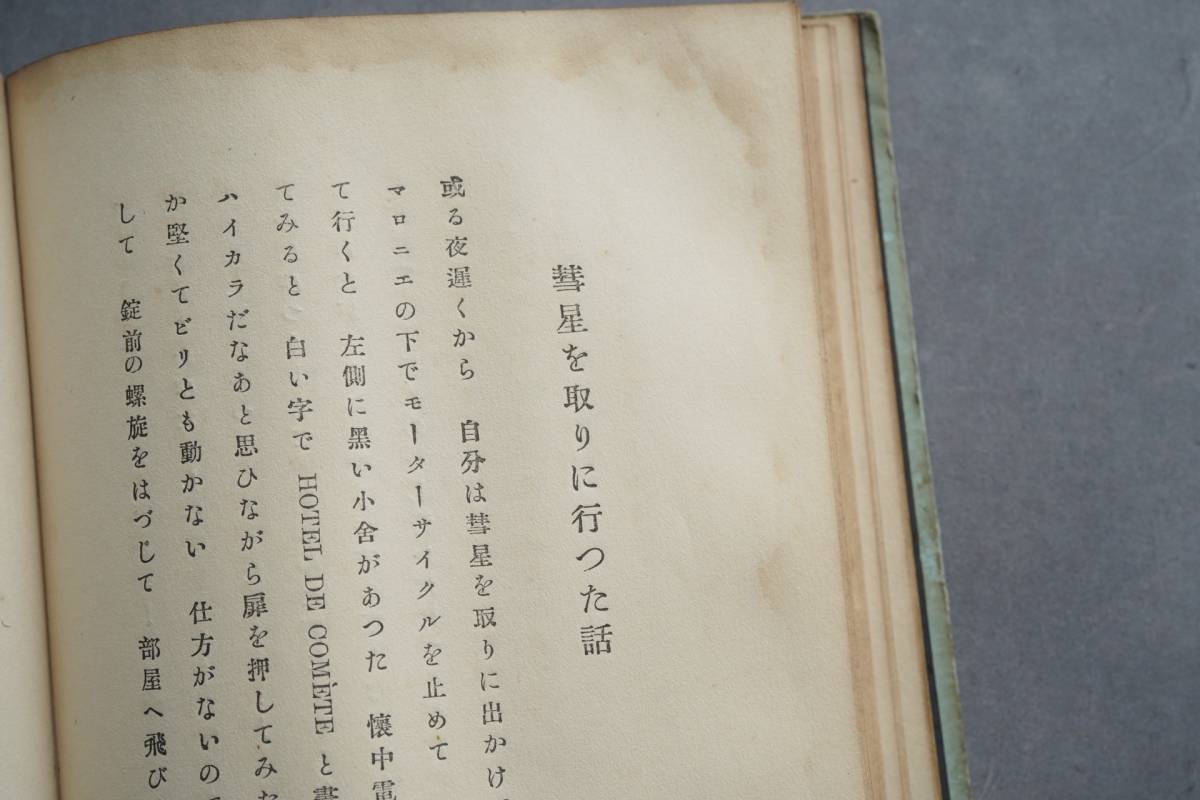 彗星を取りに行つた話
或る夜遲くから　自分は彗星を取りに出かけ
マロニエの下でモーターサイクルを止めて
て行くと　左側に黑い小舍があつた　懷中電
てみると　白い字で HOTEL DE COMÈTE と書
ハイカラだなあと思ひながら扉を押してみた
か堅くてビリとも動かない　仕方がないので
して　錠前の螺旋をはづじて　部屋へ飛び